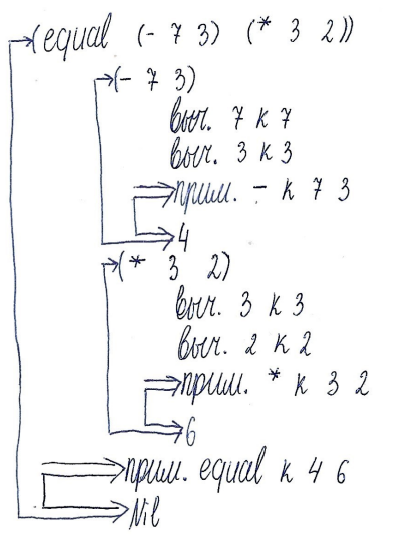 (equal (- 7 3) (* 3 2))
(- 7 3)
выч. 7 к 7
выч. 3 к 3
прим. - к 7 3
4
(* 3 2)
выч. 3 к 3
выч. 2 к 2
прим. * к 3 2
6
прим. equal к 4 6
Nil